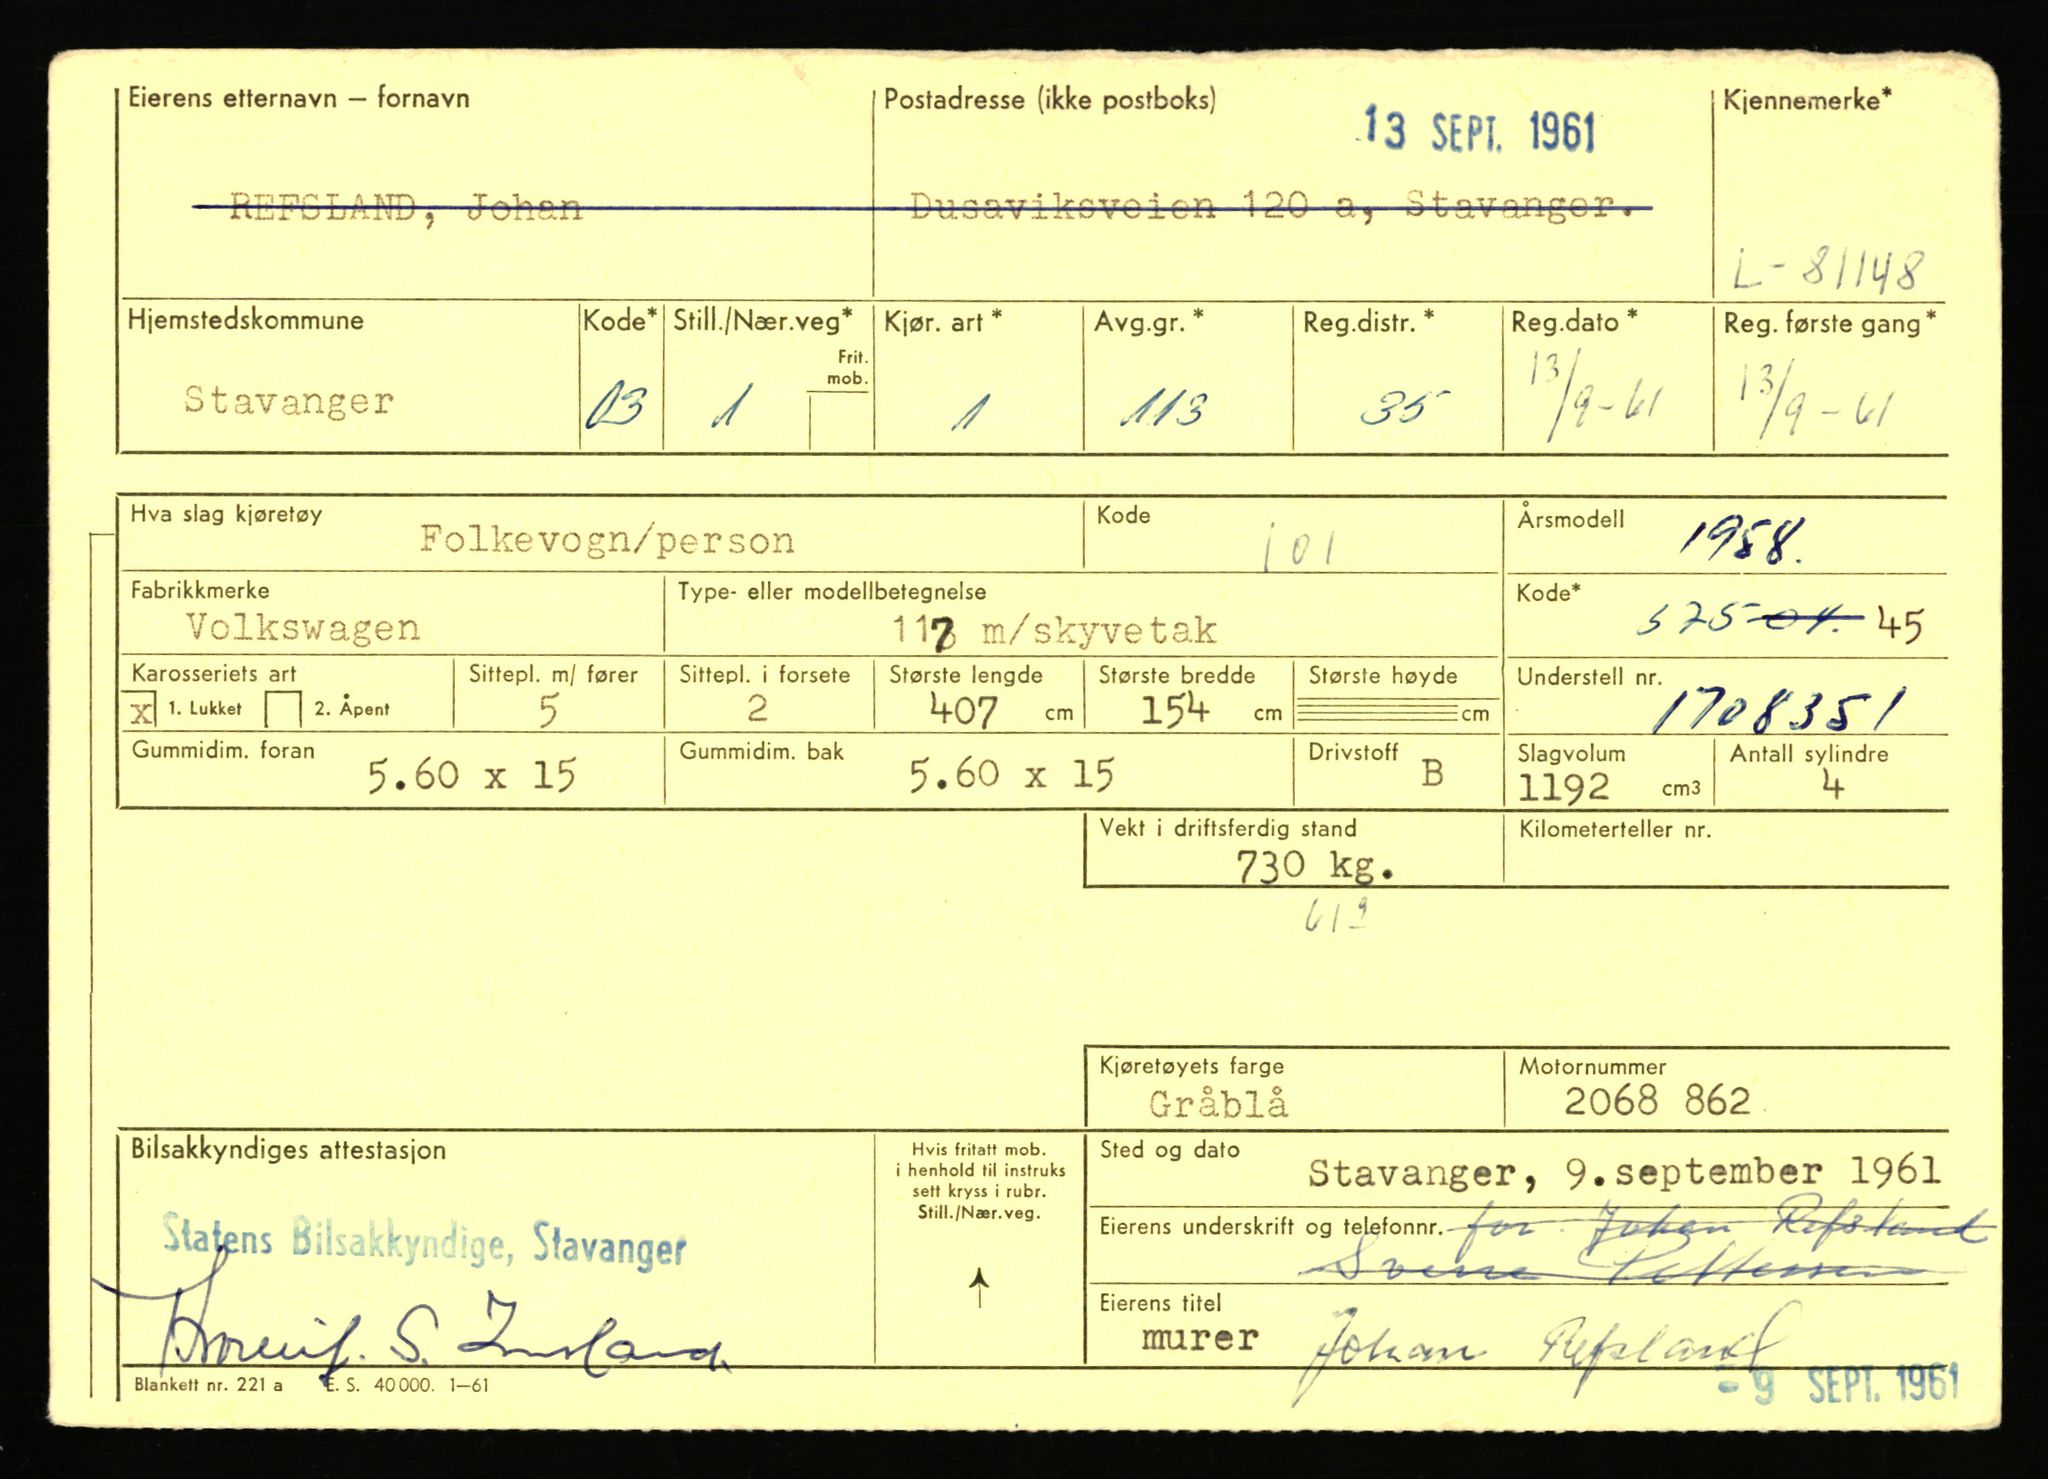 Eierens etternavn – fornavn
Postadresse (ikke postboks)
Kjennemerke*
13 SEPT. 1961
REFSLAND, Johan
Dusaviksveien 120 a, Stavanger.
L - 81148
Hjemstedskommune
Kode*
Still./Nær.veg*
Frit. mob.
Kjør. art *
Avg.gr. *
Reg.distr. *
Reg.dato *
Reg. første gang *
Stavanger
03
1
1
113
35
13/9-61
13/9-61
Hva slag kjøretøy
Folkevogn/person
Kode
101
Årsmodell
1958.
Fabrikkmerke
Volkswagen
Type- eller modellbetegnelse
117 m/skyvetak
Kode*
575-04. 45
Karosseriets art
x 1. Lukket 2. Åpent
Sittepl. m/ fører
5
Sittepl. i forsete
2
Største lengde
407 cm
Største bredde
154 cm
Største høyde
cm
Understell nr.
1708351
Gummidim. foran
5.60 x 15
Gummidim. bak
5.60 x 15
Drivstoff
B
Slagvolum
1192 cm3
Antall sylindre
4
Vekt i driftsferdig stand
730 kg.
Kilometerteller nr.
61 9
Kjøretøyets farge
Gråblå
Motornummer
2068 862
Bilsakkyndiges attestasjon
Statens Bilsakkyndige, Stavanger
Hvis fritatt mob.
i henhold til instruks
sett kryss i rubr.
Still./Nær.veg.
Sted og dato
Stavanger, 9.september 1961
Eierens underskrift og telefonnr.
for Johan Refsland
Sverre Pettersen
Eierens titel
murer
Johan Refsland
- 9 SEPT. 1961
Blankett nr. 221 a E. S. 40000. 1–61